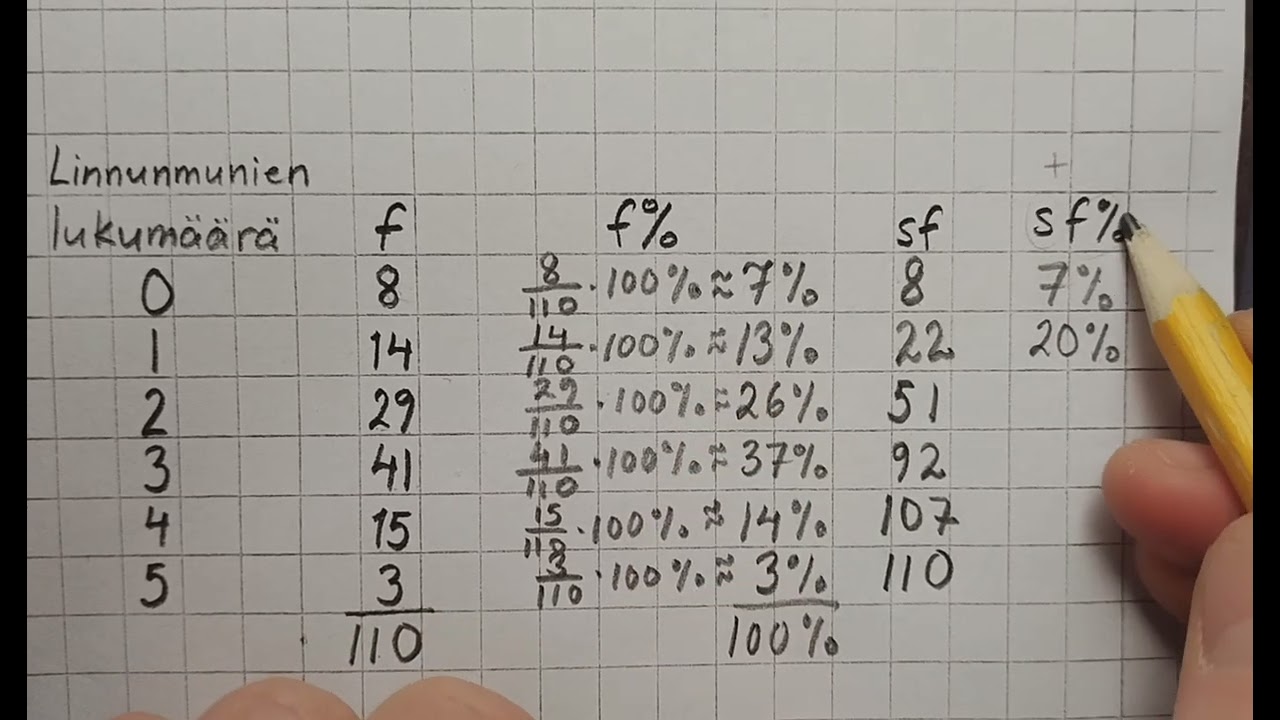 Linnunmunien +
lukumäärä f f% sf sf%
0 8 8/110 · 100% ≈ 7% 8 7%
1 14 14/110 · 100% ≈ 13% 22 20%
2 29 29/110 · 100% ≈ 26% 51
3 41 41/110 · 100% ≈ 37% 92
4 15 15/110 · 100% ≈ 14% 107
5 3 3/110 · 100% ≈ 3% 110
110 100%